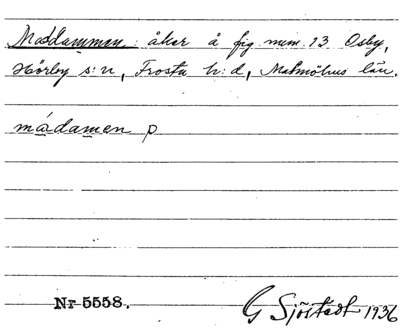 Maddammen: åker å fig. num. 13 Osby,
Hörby s:n, Frosta h:d, Malmöhus län.
mádamen p
Nr 5558. G Sjöstedt 1936